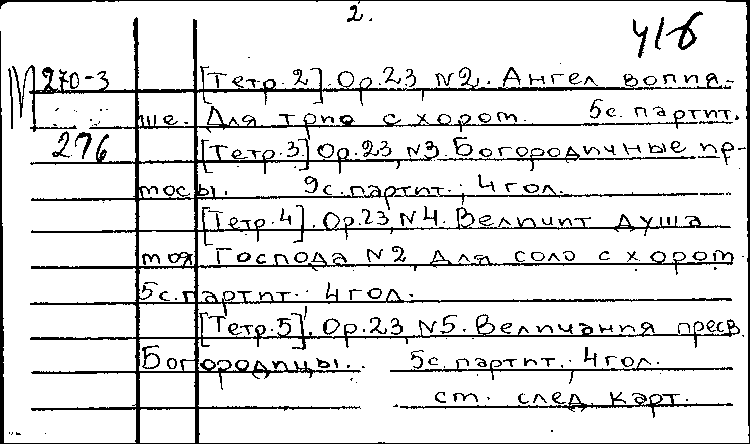 2.
41-б
М 270-3 [Тетр. 2]. Ор. 23, N2. Ангел вопия-
ше. Для трио с хором. 5с. партит.
276 [Тетр. 3] Ор. 23, N3. Богородичные пр-
мосы. 9с. партит., 4 гол.
[Тетр. 4]. Ор. 23, N4. Величит душа
моя Господа N2, для соло с хором.
5с. партит. 4 гол.
[Тетр. 5]. Ор. 23, N5. Величания пресв.
Богородицы. 5с. партит., 4 гол.
см. след. карт.